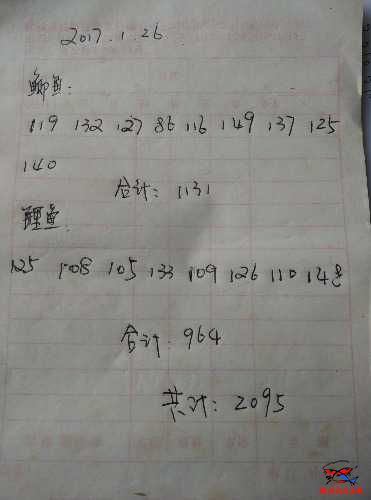 2017.1.26
鲫鱼:
119 132 127 86 116 149 137 125
140
合计: 1131
鲤鱼.
125 108 105 133 109 126 110 148
合计: 964
共计: 2095